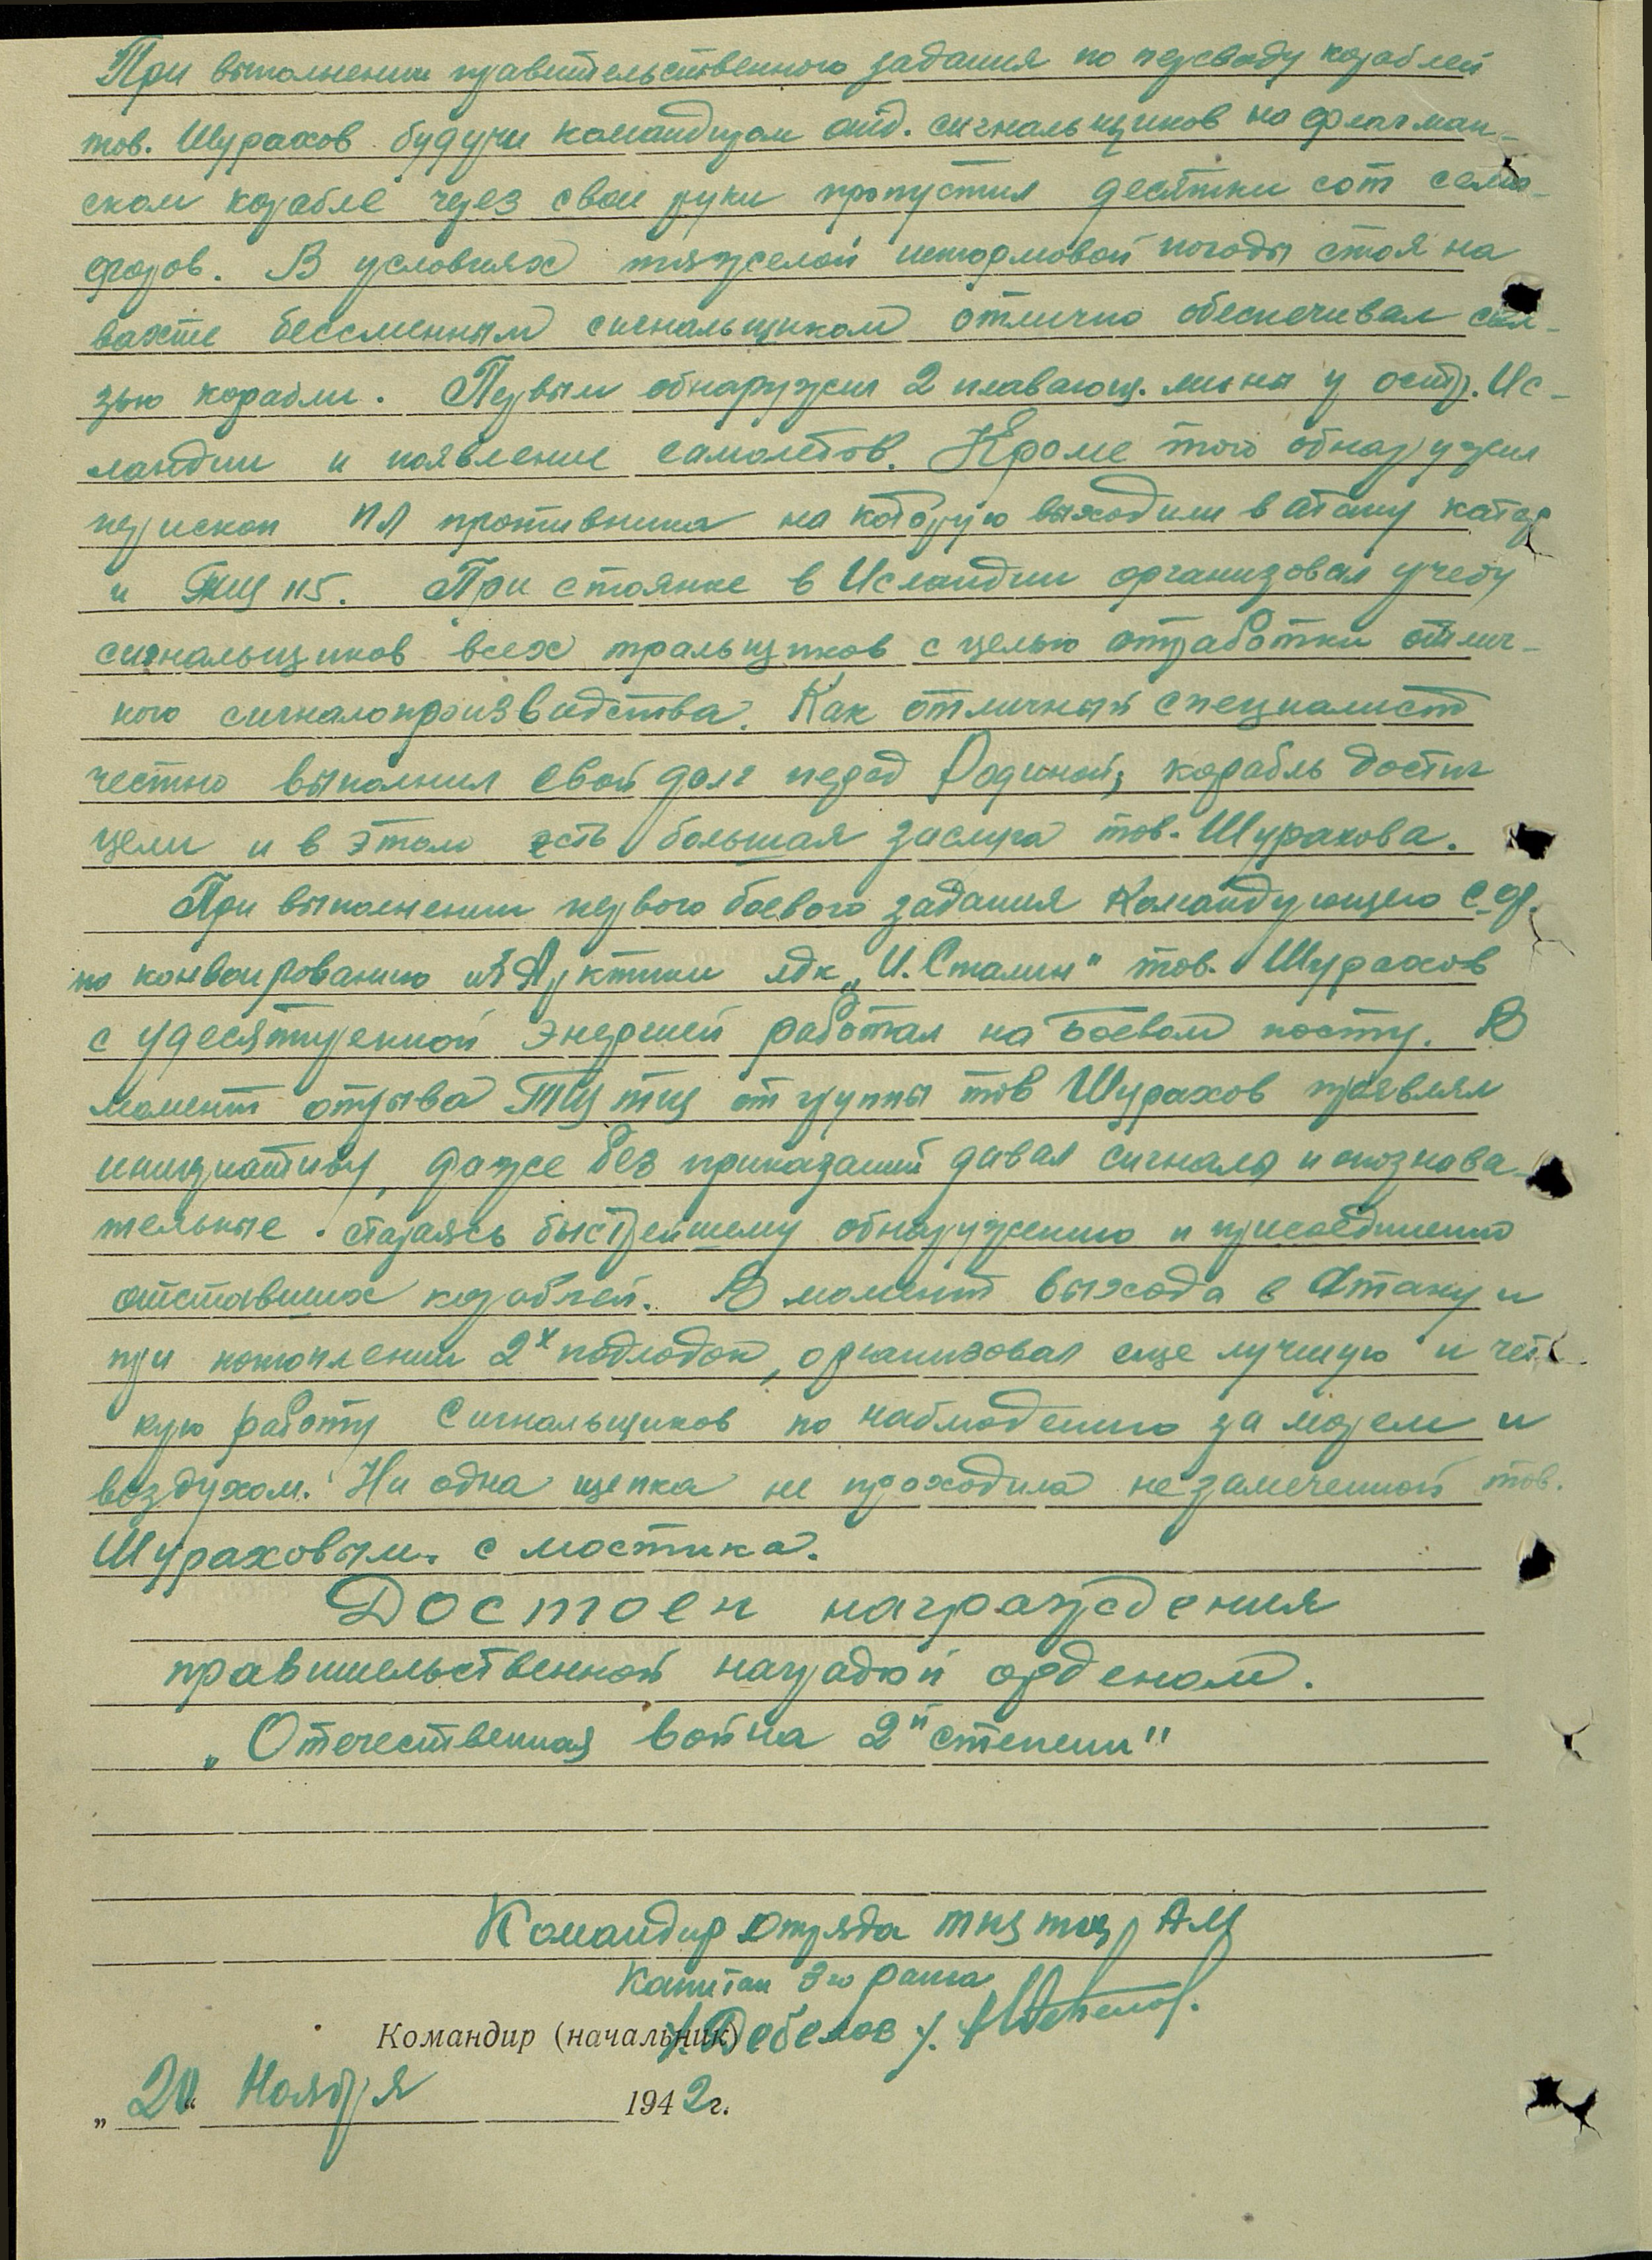 При выполнении правительственного задания по переводу кораблей
тов. Шурахов будучи командиром отд. сигнальщиков на флагман-
ском корабле через свои руки пропустил десятки сот сема-
форов. В условиях тяжелой штормовой погоды стоя на
вахте бессменным сигнальщиком отлично обеспечивал свя-
зью корабли. Первым обнаружил 2 плавающ. мины у остр. Ис-
ландии и появление самолетов. Кроме того обнаружил
перископ ПЛ противника на которую выходили в атаку катер
и ТЩ 115. При стоянке в Исландии организовал учебу
сигнальщиков всех тральщиков с целью отработки отлич-
ного сигналопроизводства. Как отличный специалист
честно выполнил свой долг перед Родиной, корабль достиг
цели и в этом есть большая заслуга тов. Шурахова.
При выполнении первого боевого задания Командующего С.Ф.
по конвоированию из Арктики лдк „И. Сталин" тов. Шурахов
с удесятеренной энергией работал на боевом посту. В
момент отрыва ТЩ тщ от группы тов Шурахов проявлял
инициативу, даже без приказаний давал сигналы и опознава-
тельные. стараясь быстрейшему обнаружению и присоединению
отставших кораблей. В момент выхода в атаку и
при потоплении 2х подлодок, организовал еще лучшую и чет-
кую работу сигнальщиков по наблюдению за морем и
воздухом. Ни одна щепка не проходила незамеченной тов.
Шураховым. с мостика.
Достоен награждения
правительственной наградой орденом.
„Отечественная война 2й степени"
Командир отряда тщ тщ АМ
Капитан 3го ранга
Командир (начальник) /. Дебелов /.
„20" Ноября 1942г.